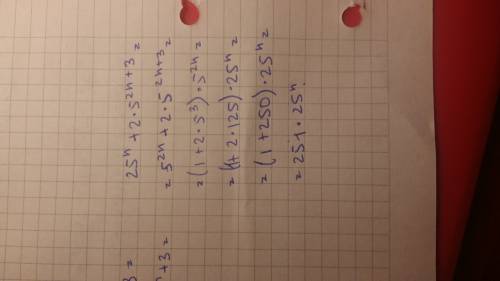 25ⁿ + 2 · 5²ⁿ⁺³ =
= 5²ⁿ + 2 · 5²ⁿ⁺³ =
= (1 + 2 · 5³) · 5²ⁿ =
= (1 + 2 · 125) · 25ⁿ =
= (1 + 250) · 25ⁿ =
= 251 · 25ⁿ.
3 =
ⁿ + 3 =